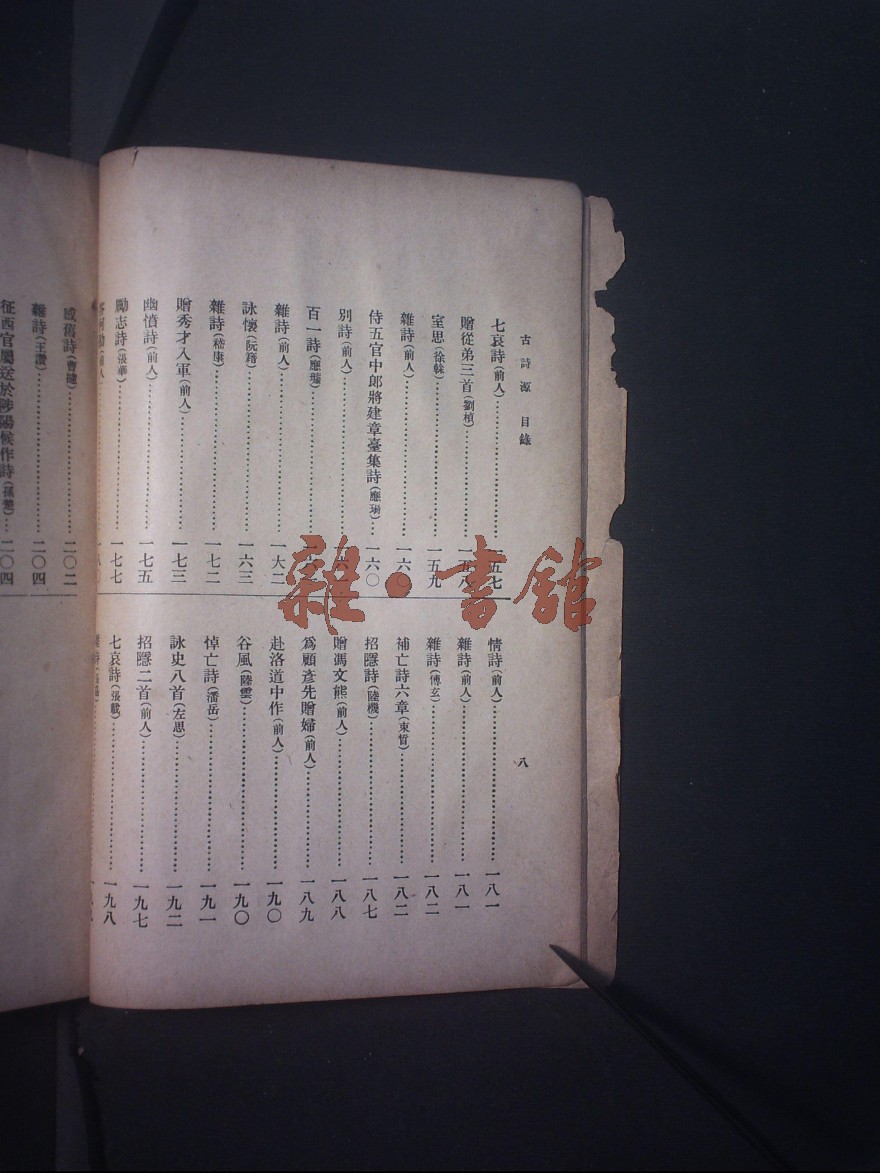 古詩源 目錄
八
七哀詩(前人)……一五七
贈從弟三首(劉楨)……一五八
室思(徐榦)……一五九
雜詩(前人)……一六〇
侍五官中郎將建章臺集詩(應瑒)……一六〇
別詩(前人)……一六
百一詩(應璩)……一六
雜詩(前人)……一六二
詠懷(阮籍)……一六三
雜詩(嵇康)……一七二
贈秀才入軍(前人)……一七三
幽憤詩(前人)……一七五
勵志詩(張華)……一七七
情詩(前人)……一八一
雜詩(前人)……一八一
雜詩(傅玄)……一八二
補亡詩六章(束晳)……一八二
招隱詩(陸機)……一八七
贈馮文熊(前人)……一八八
爲顧彥先贈婦(前人)……一八九
赴洛道中作(前人)……一九〇
谷風(陸雲)……一九〇
悼亡詩(潘岳)……一九一
詠史八首(左思)……一九二
招隱二首(前人)……一九七
七哀詩(張載)……一九八
感舊詩(曹攄)……二〇二
雜詩(王讚)……二〇四
征西官屬送於陟陽候作詩(孫楚)……二〇四
雜·書館